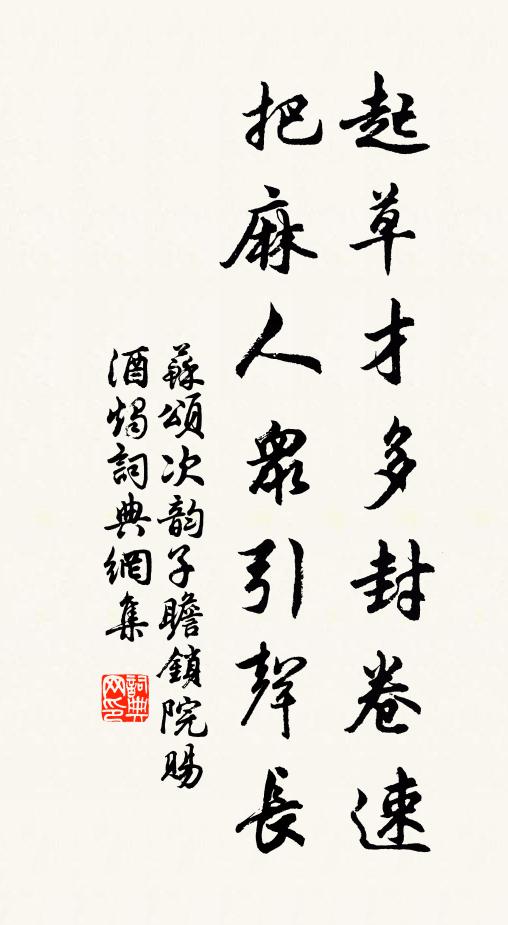 起草才多封卷速
把麻人眾引聲長
蘇頌次韵子瞻鎖院賜
酒燭詞典網集
詞典网印